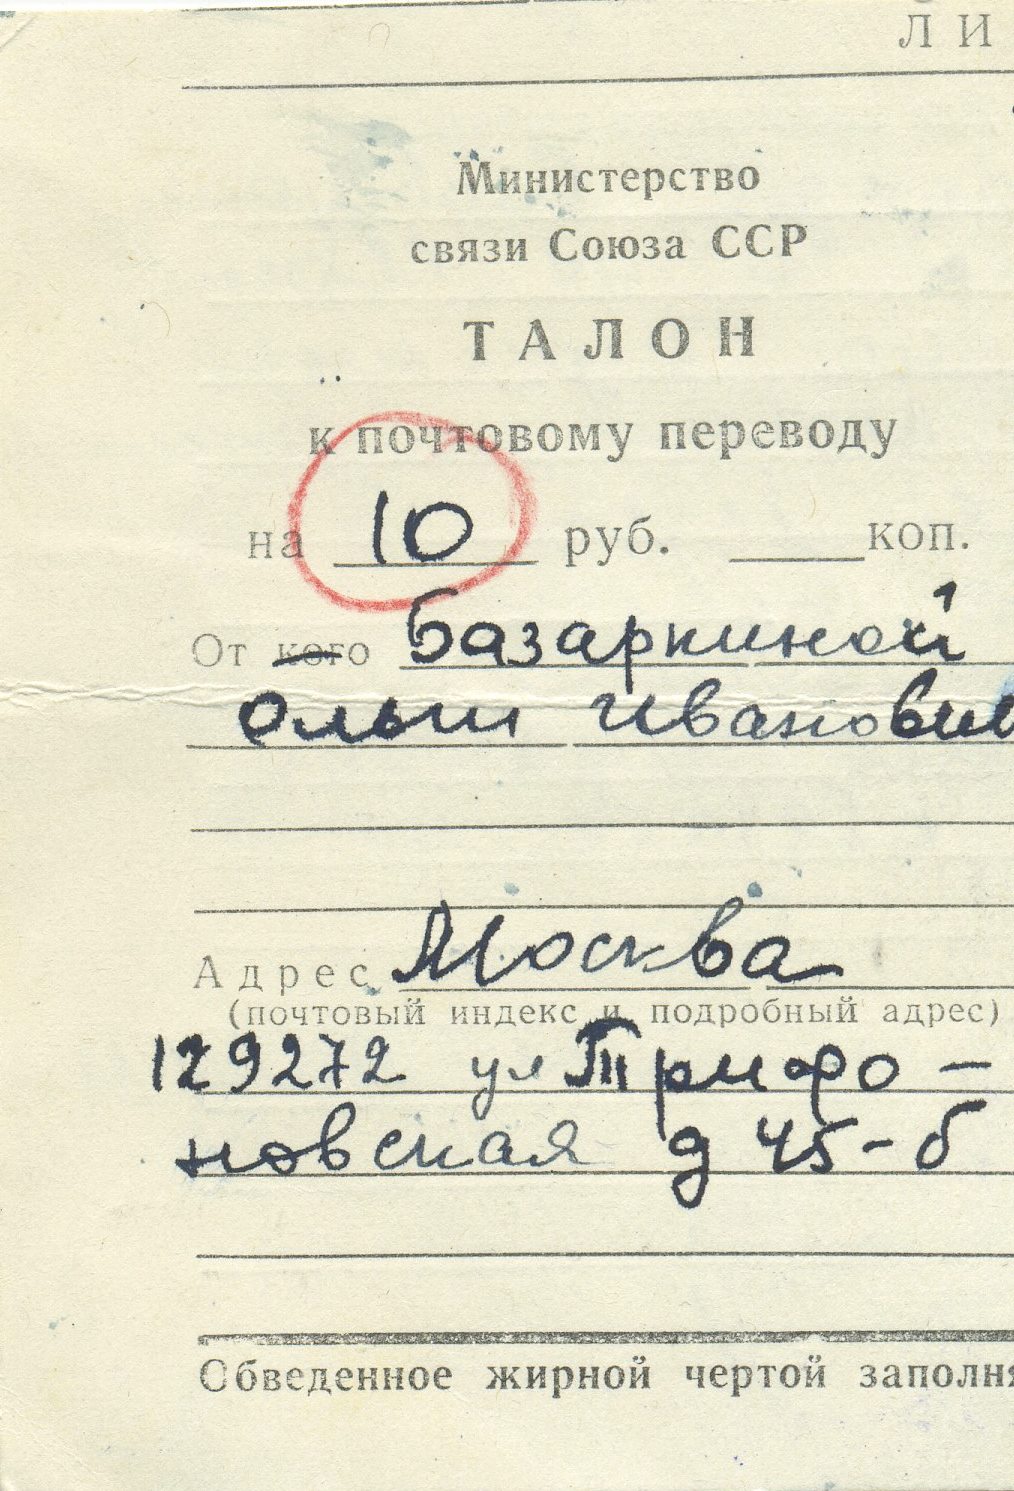 ЛИ
Министерство
связи Союза ССР
ТАЛОН
к почтовому переводу
на 10 руб. коп.
От кого Базаркиной
Ольги Ивановны
Адрес Москва
(почтовый индекс и подробный адрес)
129272 ул Трифо-
новская д 45-б
Обведенное жирной чертой заполня